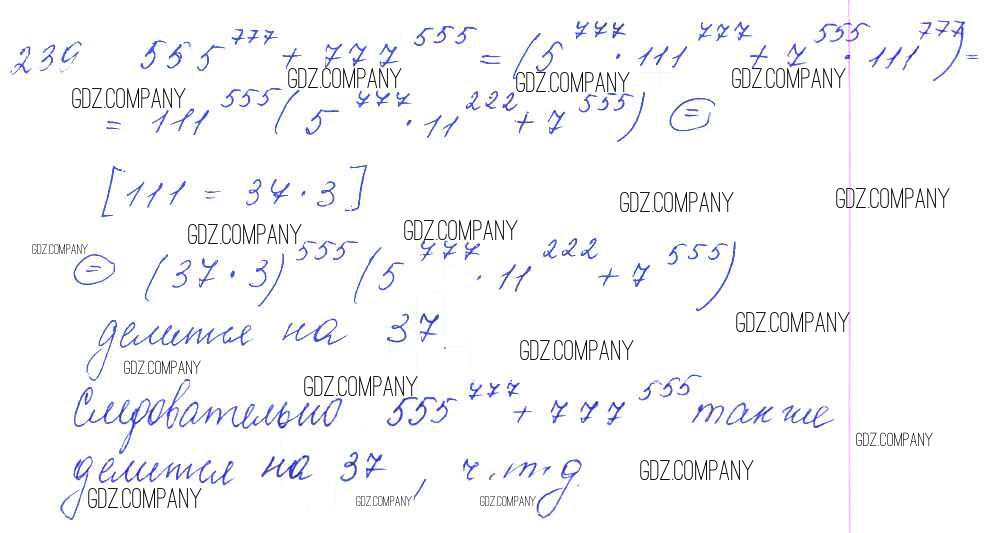 239 555^777 + 777^555 = (5^777 · 111^777 + 7^555 · 111^777) =
GDZ.COMPANY GDZ.COMPANY GDZ.COMPANY GDZ.COMPANY
= 111^555 (5^777 · 11^222 + 7^555) =
[111 = 37 · 3]
GDZ.COMPANY GDZ.COMPANY
GDZ.COMPANY GDZ.COMPANY GDZ.COMPANY
= (37 · 3)^555 (5^777 · 11^222 + 7^555)
делится на 37
GDZ.COMPANY GDZ.COMPANY
GDZ.COMPANY GDZ.COMPANY
Следовательно 555^777 + 777^555 также
GDZ.COMPANY
делится на 37, ч.т.д
GDZ.COMPANY GDZ.COMPANY GDZ.COMPANY GDZ.COMPANY